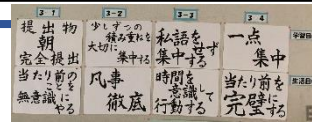 3-1
提出物
朝
完全提出
当たり前のことを
無意識にやる
3-2
少しずつの
積み重ねを
大切に
集中する
凡事
徹底
3-3
私語をせず
集中する
時間を
意識して
行動する
3-4
一点
集中
当たり前を
完璧にする
学習目
生活目